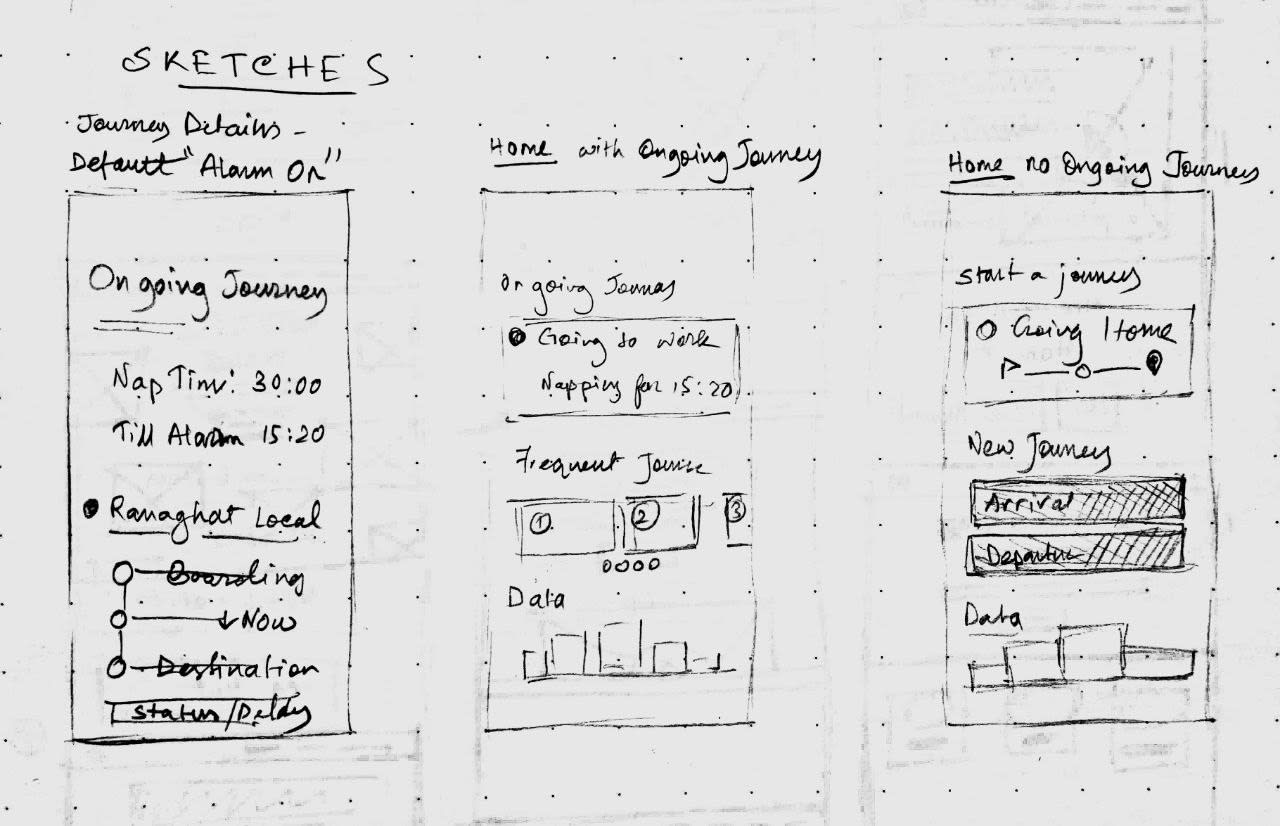 SKETCHES
Journey Details -
Default "Alarm On"
Ongoing Journey
Nap Time: 30:00
Till Alarm 15:20
Ranaghat Local
Boarding
Now
Destination
Status/Delay
Home with Ongoing Journey
Ongoing Journey
Going to work
Napping for 15:20
Frequent
1 2 3
Data
Home no Ongoing Journey
Start a journey
Going Home
New Journey
Arrival
Departure
Data